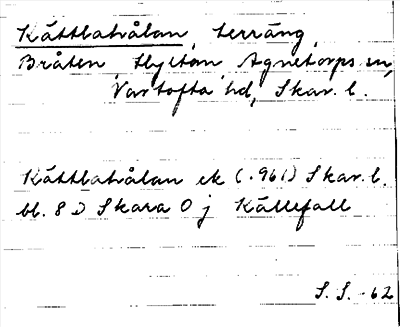 Kättbahålan, terräng,
Bråten Hyltan Agnetorps sn,
Vartofta hd, Skar. l.
Kättbahålan ek (.961) Skar. l.
bl. 8 ) Skara O j Källefall
S. S. -62